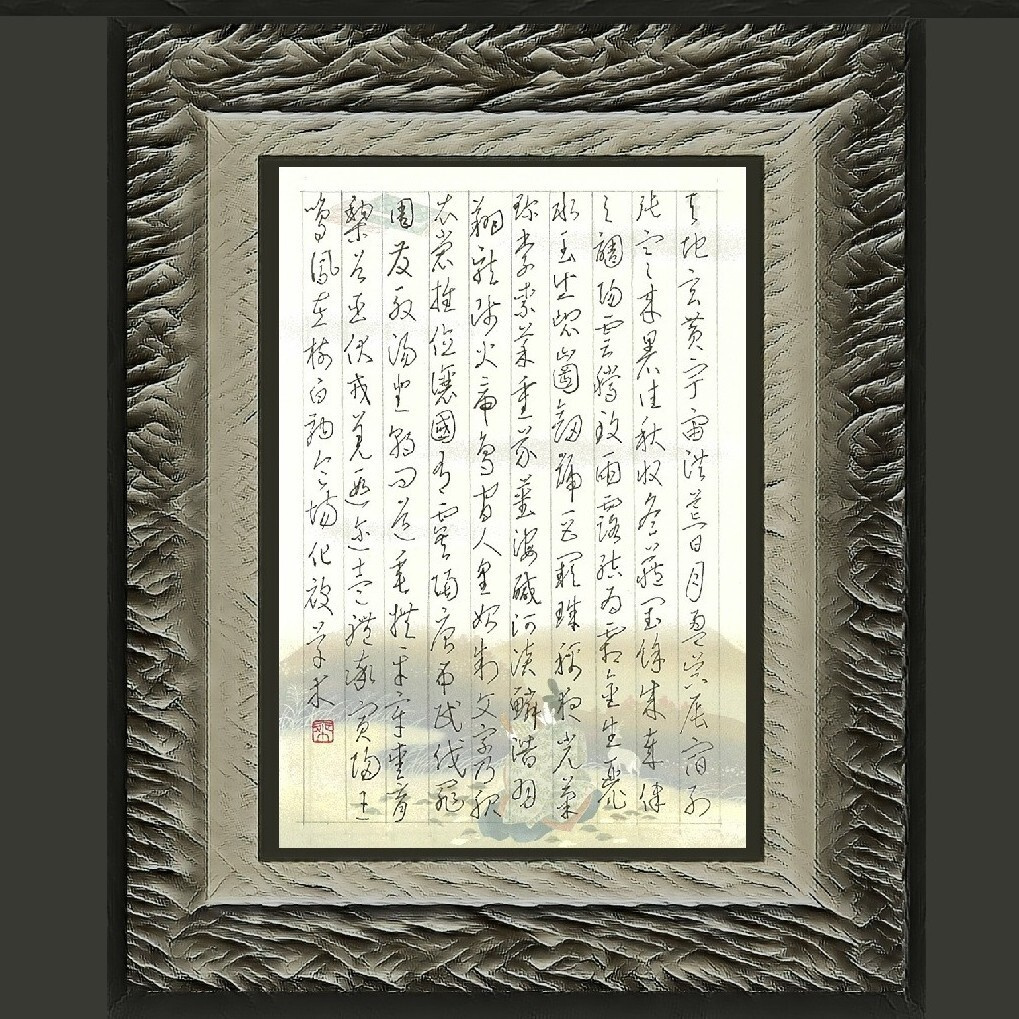 天地玄黃宇宙洪荒日月盈昃辰宿列
張寒來暑往秋收冬藏閏餘成歲律
呂調陽雲騰致雨露結為霜金生麗
水玉出崑岡劍號巨闕珠稱夜光菓
珍李柰菜重芥薑海鹹河淡鱗潛羽
翔龍師火帝鳥官人皇始制文字乃服
衣裳推位讓國有虞陶唐弔民伐罪
周發殷湯坐朝問道垂拱平章愛育
黎首臣伏戎羌遐邇壹體率賓歸王
鳴鳳在樹白駒食場化被草木